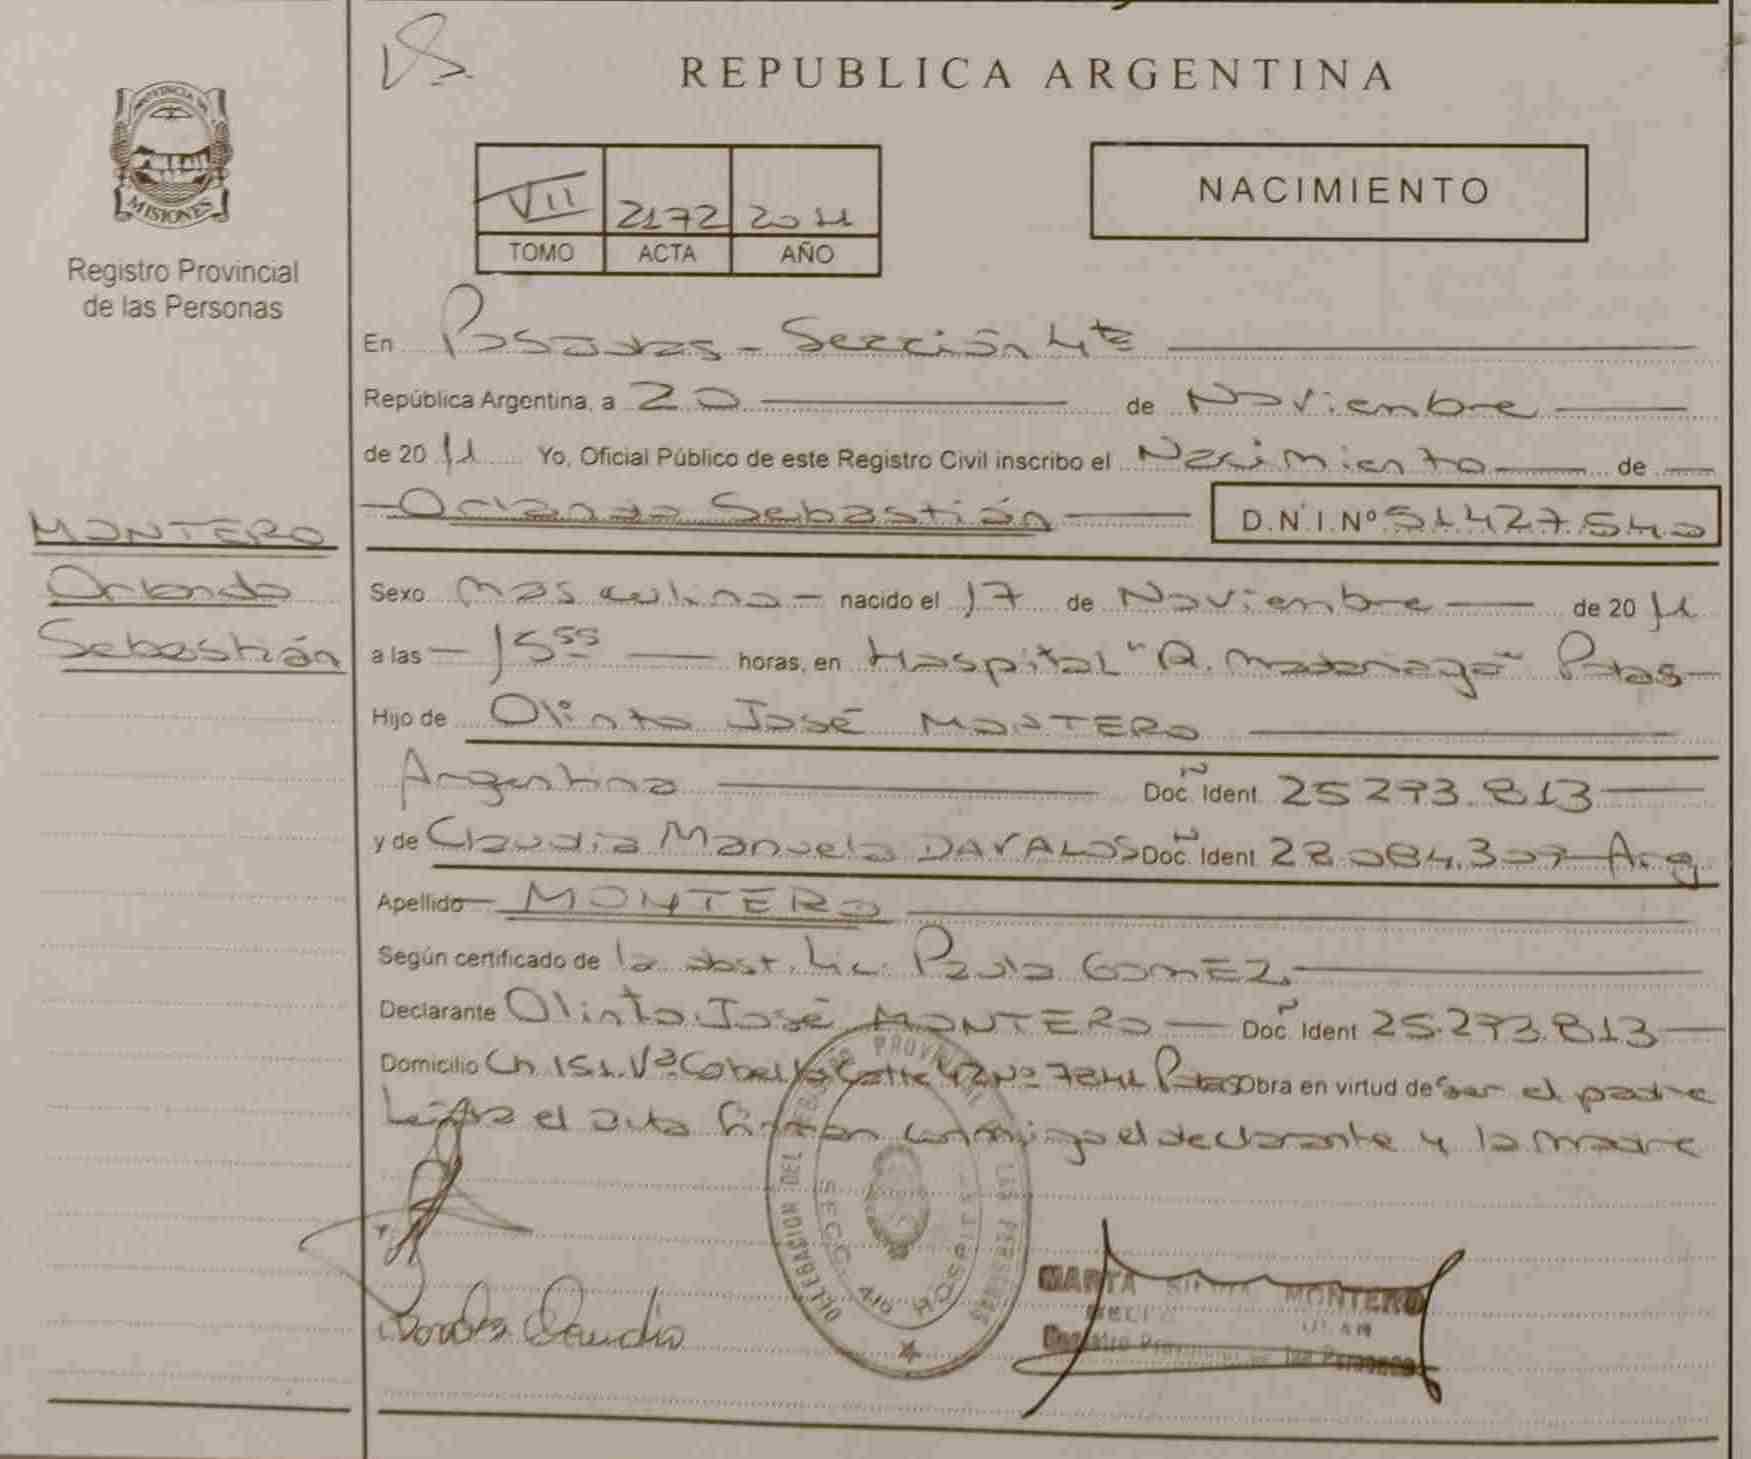 REPUBLICA ARGENTINA
PROVINCIA DE
MISIONES
Registro Provincial
de las Personas
VII 2172 2011
TOMO ACTA AÑO
NACIMIENTO
En Posadas - Sección 4ta
República Argentina, a 20 de Noviembre
de 2011 Yo, Oficial Público de este Registro Civil inscribo el Nacimiento de
Orlando Sebastián D.N.I. Nº 51.427.540
MONTERO
Orlando
Sebastián
Sexo masculino - nacido el 17 de Noviembre de 2011
a las - 15 55 horas, en Hospital "R. Madariaga" Pdas
Hijo de Olinto José MONTERO
Argentina Doc. Ident 25.273.813
y de Claudia Manuela DAVALOS Doc. Ident 22.084.307 Arg
Apellido MONTERO
Según certificado de la obst. Lic. Paula GOMEZ
Declarante Olinto José MONTERO Doc. Ident 25.273.813
Domicilio Ch 151. Vª Cabello Calle 42 Nº Pdas Obra en virtud de ser el padre
Leída el acta firman conmigo el declarante y la madre
DELEGACION DEL REGISTRO PROVINCIAL DE LAS PERSONAS
SECC.
MARTA SILVIA MONTERO
Registro Provincial de las Personas
Claudia